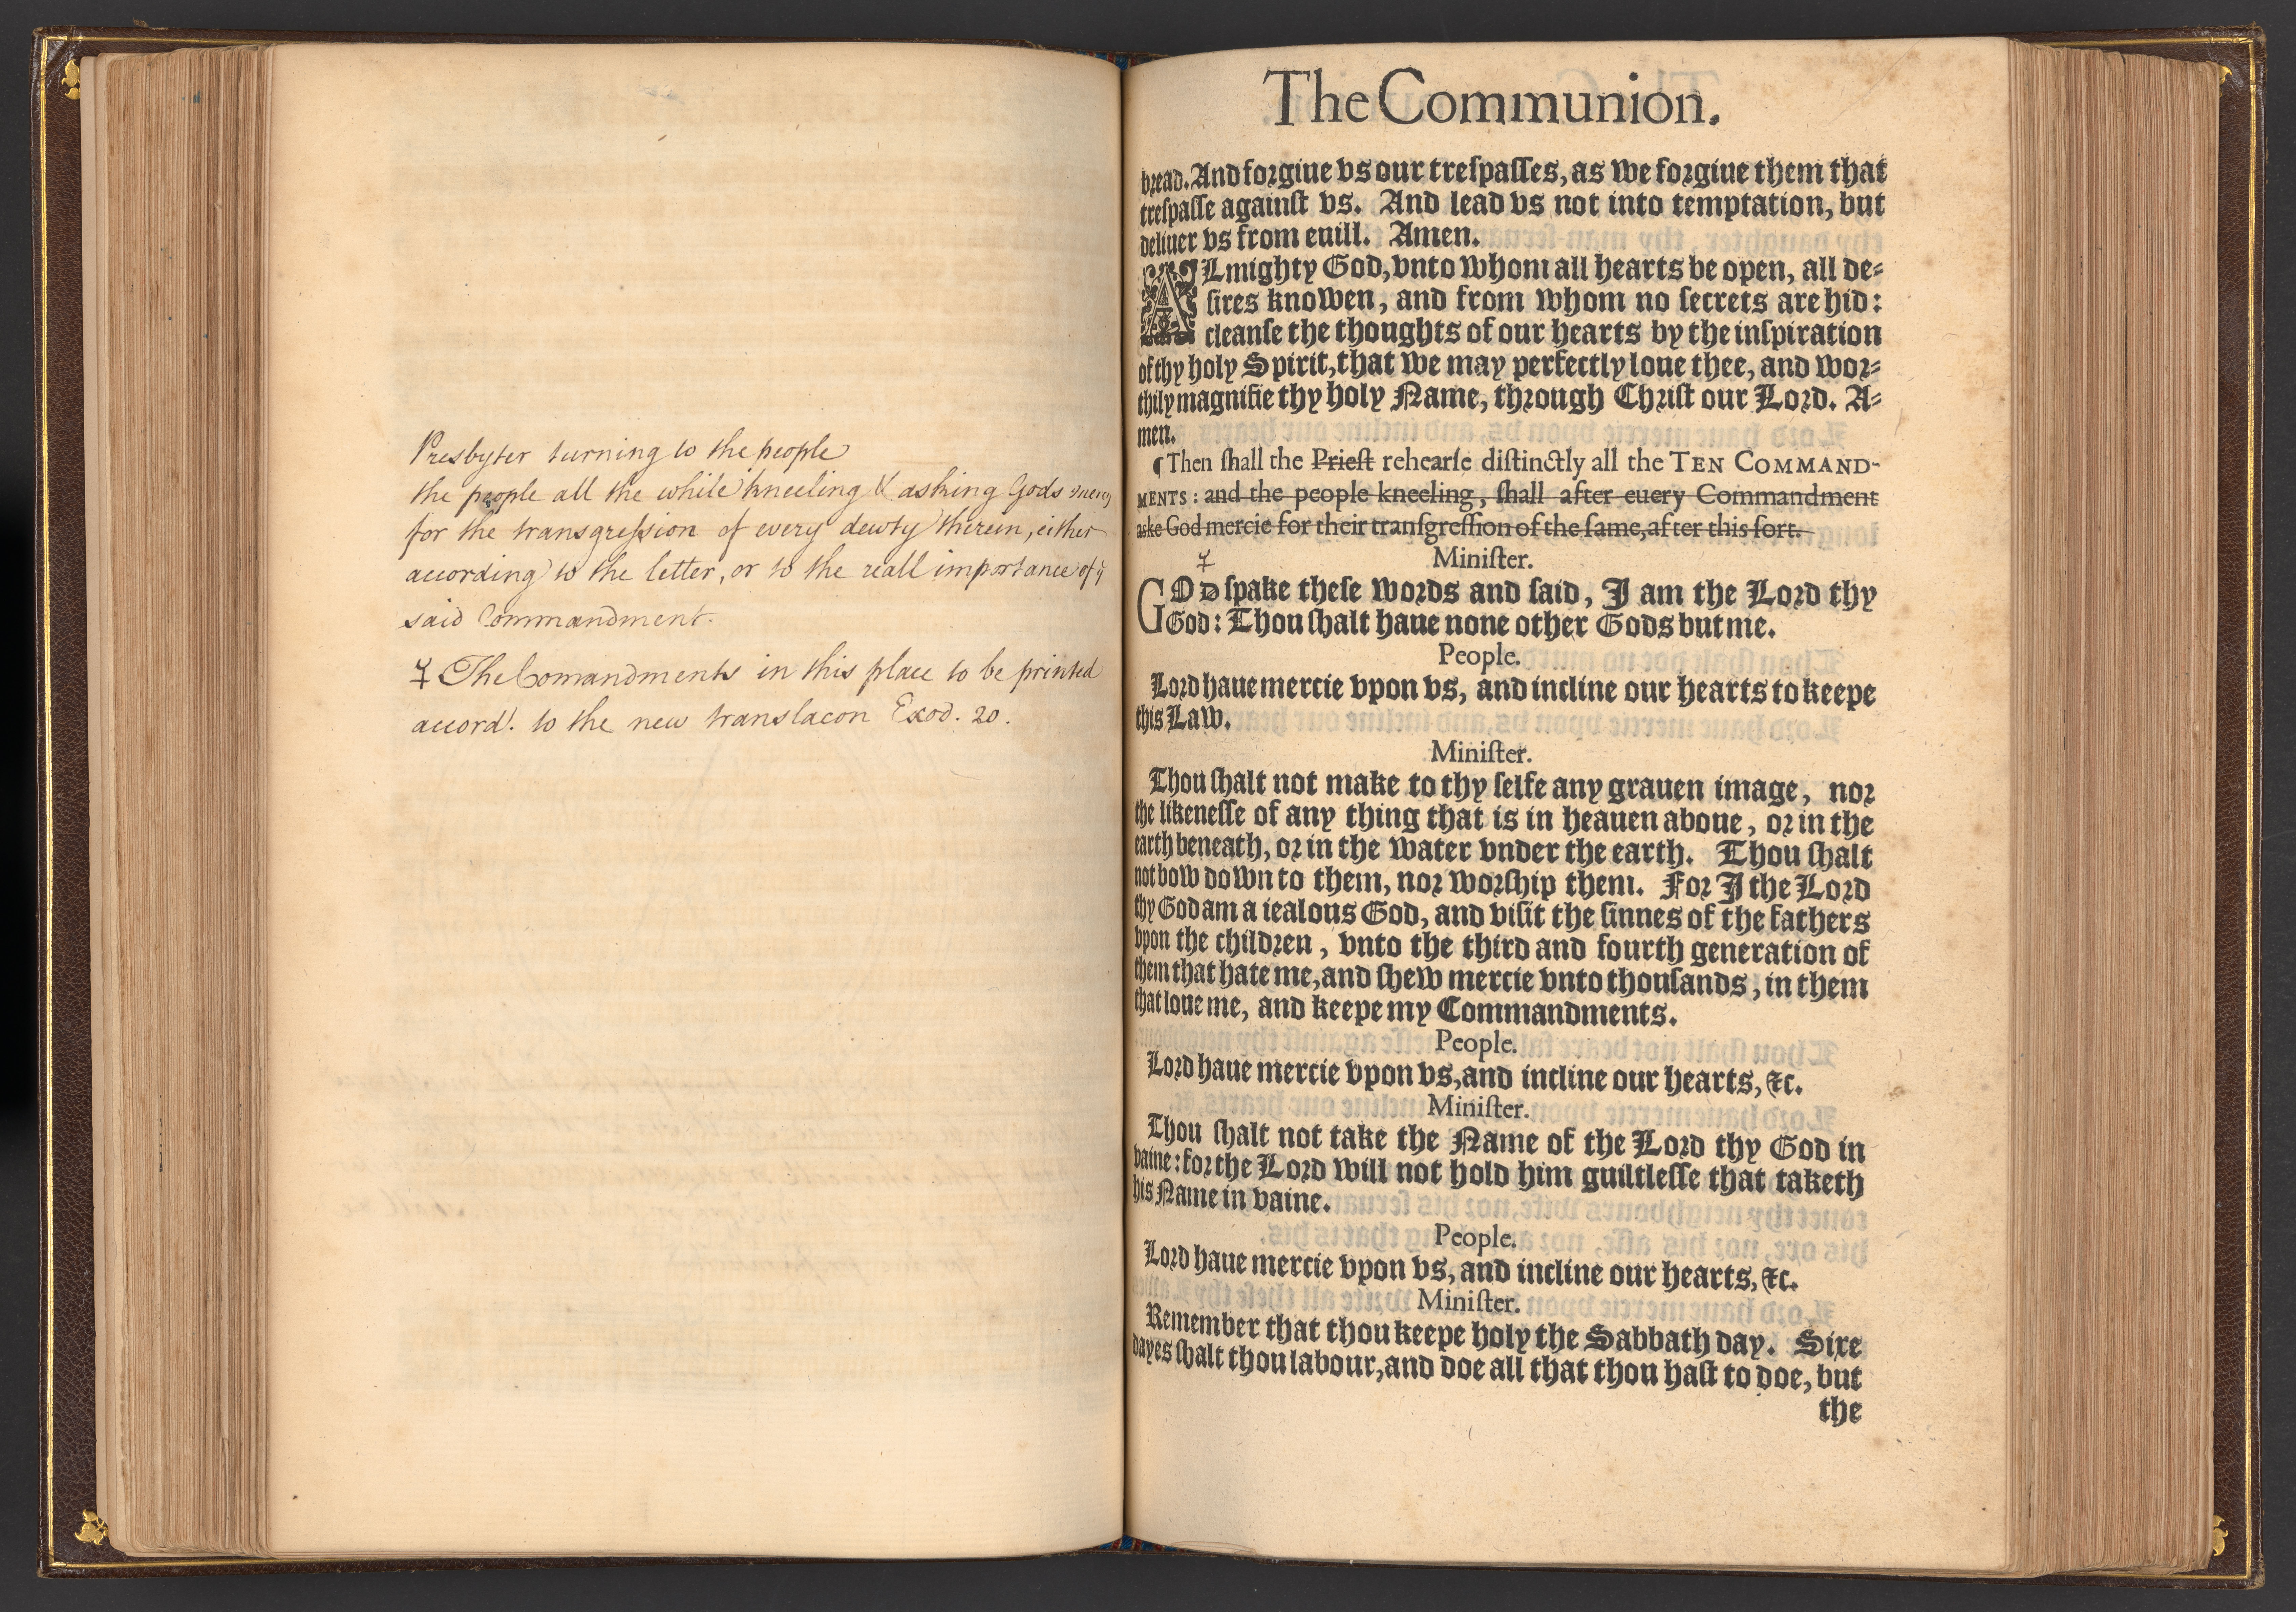 Presbyter turning to the people
the people all the while kneeling & asking Gods mercy
for the transgression of every dewty therein, either
according to the letter, or to the reall importance of yͤ
said Commandment.
☿ The Comandments in this place to be printed
accord! to the new translacon Exod. 20.
The Communion.
bread. And forgiue vs our treſpaſſes, as we forgiue them that
treſpaſſe againſt vs. And lead vs not into temptation, but
deliuer vs from euill. Amen.
ALmighty God, vnto whom all hearts be open, all de-
ſires knowen, and from whom no ſecrets are hid:
cleanſe the thoughts of our hearts by the inſpiration
of thy holy Spirit, that we may perfectly loue thee, and wor-
thily magnifie thy holy Name, through Chriſt our Lord. A-
men.
¶ Then ſhall the Prieſt rehearſe diſtinctly all the TEN COMMAND-
MENTS: and the people kneeling, ſhall after euery Commandment
aske God mercie for their tranſgreſſion of the ſame, after this ſort.
☿ Miniſter.
GOD ſpake theſe words and ſaid, I am the Lord thy
God: Thou ſhalt haue none other Gods but me.
People.
Lord haue mercie vpon vs, and incline our hearts to keepe
this Law.
Miniſter.
Thou ſhalt not make to thy ſelfe any grauen image, nor
the likeneſſe of any thing that is in heauen aboue, or in the
earth beneath, or in the water vnder the earth. Thou ſhalt
not bow down to them, nor worſhip them. For I the Lord
thy God am a iealous God, and viſit the ſinnes of the fathers
vpon the children, vnto the third and fourth generation of
them that hate me, and ſhew mercie vnto thouſands, in them
that loue me, and keepe my Commandments.
People.
Lord haue mercie vpon vs, and incline our hearts, &c.
Miniſter.
Thou ſhalt not take the Name of the Lord thy God in
vaine: for the Lord will not hold him guiltleſſe that taketh
his Name in vaine.
People.
Lord haue mercie vpon vs, and incline our hearts, &c.
Miniſter.
Remember that thou keepe holy the Sabbath day. Sixe
dayes ſhalt thou labour, and doe all that thou haſt to doe, but
the